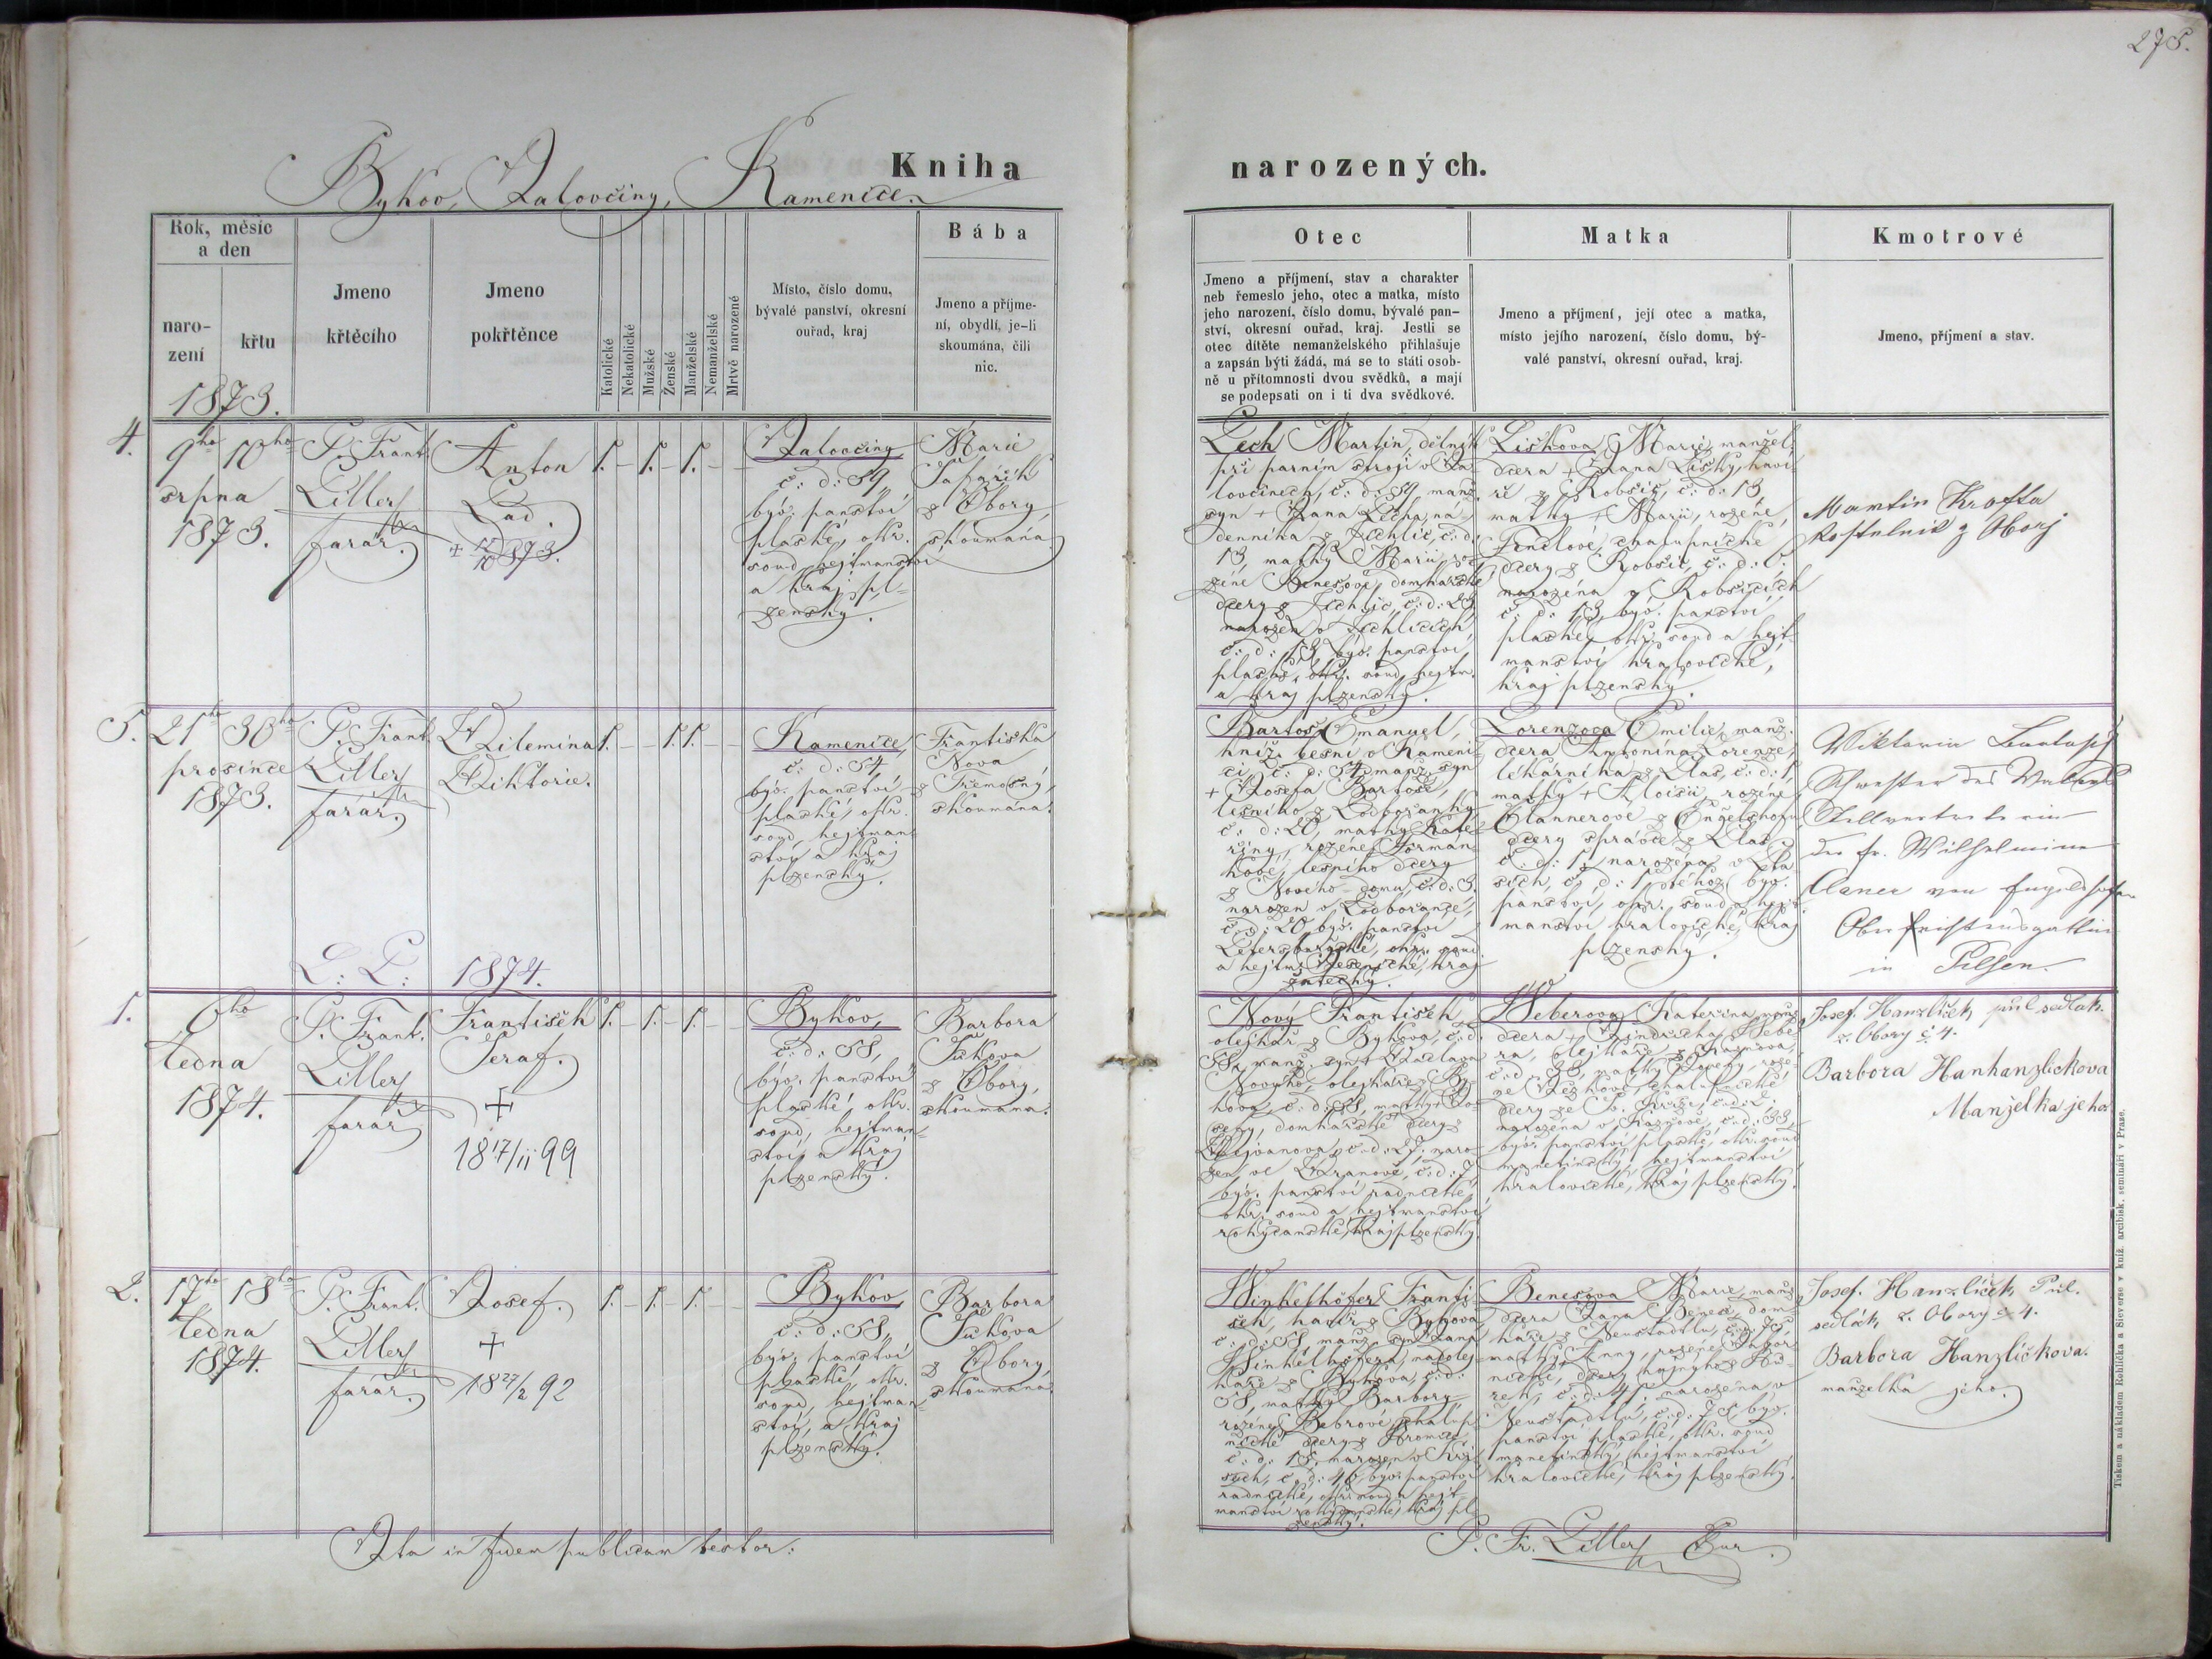 275.
Kniha
narozených.
Bykov, Jalovčiny, Kamenice.
Rok, měsíc
a den
naro-
zení
křtu
1873.
Jmeno
křtěcího
Jmeno
pokřtěnce
Katolické
Nekatolické
Mužské
Ženské
Manželské
Nemanželské
Mrtvě narozené
Místo, číslo domu,
bývalé panství, okresní
ouřad, kraj
Bába
Jmeno a příjme-
ní, obydlí, je-li
skoumána, čili
nic.
Otec
Jmeno a příjmení, stav a charakter
neb řemeslo jeho, otec a matka, místo
jeho narození, číslo domu, bývalé pan-
ství, okresní ouřad, kraj. Jestli se
otec dítěte nemanželského přihlašuje
a zapsán býti žádá, má se to státi osob-
ně u přítomnosti dvou svědků, a mají
se podepsati on i ti dva svědkové.
Matka
Jmeno a příjmení, její otec a matka,
místo jejího narození, číslo domu, bý-
valé panství, okresní ouřad, kraj.
Kmotrové
Jmeno, příjmení a stav.
4.
9ho 10ho
srpna
1873.
P. Frant.
farář.
Anton
Lad.
1. – 1. – 1. – –
Jalovčiny
č: d: 59,
býv. panství
plaské, okr.
soud, hejtmanství
a kraj pl-
zenský.
Marie
Šafařík
z Obory,
skoumána.
Lech Martin, dělník
při parním stroji v Ja-
lovčinech, č: d: 59, manž.
syn + Jana Lecha, ná-
denníka z Lichlic, č: d:
13, matky Marie, ro-
zené Benešové, domkářské
dcery z Lichlic, č: d: 23,
narozen v Lichlicích,
č: d: 13, býv. panství
plaské, okr. soud, hejtm.
a kraj plzenský.
Lišková Marie, manžel.
dcera + Jana Lišky, haví-
ře z Robčic, č: d: 13,
matky + Marie, rozené
chalupnické
dcery z Robčic, č: d:
narozena v Robčicích
č: d: 13, býv. panství
plaské, okr. soud a hejt-
manství kralovické,
kraj plzenský.
Martin Krofta
Kostelník z Obory
5.
21ho 30ho
prosince
1873.
P. Frant.
farář.
Vilemína
Viktorie.
1. – – 1. 1. – –
Kamenice,
č: d: 54,
býv. panství
plaské, okr.
soud, hejtman-
ství a kraj
plzenský.
Františka
Nová
z Třemošny,
skoumána.
Bartoš Emanuel,
kníž. lesní v Kameni-
ci, č: d: 54, manž. syn
+ Josefa Bartoše,
lesního z Ledbořanky
č: d: 20, matky Kate-
řiny, rozené Forman-
kové, lesního dcery
z Nového domu, č: d: 3.
narozen v
č: d: 20, býv. panství
Petersburgské, okr. soud
a hejtm. Jesenické, kraj
žatecký.
Lorenzova Emilie, manž.
dcera Antonína Lorenze,
lékárníka z Plas, č: d: 1,
matky + Aloisie, rozené
Clannerové z Engelshofu
dcery správce z Plas,
č: d: 1, narozena v Pla-
sích, č: d: 1, téhož býv.
panství, okr. soud a hejt-
manství kralovické, kraj
plzenský.
Viktoria
Schwester des
Stellvertreterin
der Fr. Wilhelmine
Claner von Engelshofen
in Pilsen.
L: P: 1874.
1.
6ho
ledna
1874.
P. Frant.
farář
František
Seraf.
+
18 17/11 99
1. – 1. – 1. – –
Bykov,
č: d: 58,
býv. panství
plaské, okr.
soud, hejtman-
ství a kraj
plzenský.
Barbora
z Obory,
skoumána.
Nový František
olejkář z Bykova, č: d:
58, manž. syn + Václava
Nového, olejkáře z By-
kova, č: d: 58, matky Jo-
sefy, domkářské dcery z
Vejvanova, č: d: 27, naro-
zen ve Vranově, č: d: 7,
býv. panství radnické,
okr. soud a hejtmanství
rokycanské, kraj plzenský.
Weberova Kateřina, manž.
dcera + Jindřicha Webe-
ra, olejkáře z Kaznova,
č: d: 38, matky Josefy, roze-
né chalupnické
dcery ze
narozena v Kaznově, č: d: 38,
býv. panství plaské, okr. soud
manetínský, hejtmanství
kralovické, kraj plzenský.
Josef. Hanzlíček půl sedlák.
z. Obory č 4.
Barbora Hanhanzličkova
Manželka jeho
2.
17ho 18ho
ledna
1874.
P. Frant.
farář.
Josef.
+
18 27/2 92
1. – 1. – 1. – –
Bykov,
č: d: 58,
býv. panství
plaské, okr.
soud, hejtman-
ství, a kraj
plzenský.
Barbora
z Obory,
skoumána.
Winkelhöfer Franti-
šek, havíř z Bykova
č: d: 58, manž. syn Jana
Winkelhöfera, na olej-
káře z Bykova, č: d:
58, matky Barbory
rozené Bebrové, chalup-
nické dcery z
č: d: 15, narozen v Kří-
sech, č: d: 46, býv. panství
radnické, okr. soud a hejt-
manství rokycanské, kraj pl-
zenský.
Benešova Marie, manž.
dcera Jana Beneše, dom-
káře z Neustädtlu, č: d: 75,
matky Anny, rozené
dcery hajného z
č: d: 41. narozena v
Neustädtlu, č: d: 75, býv.
panství plaské, okr. soud
manetínský, hejtmanství
kralovické, kraj plzenský.
Josef. Hanzlíček Půl.
sedlák z. Obory č 4.
Barbora Hanzličkova.
manželka jeho.
Ita in fidem publicam testor:
P. Fr.
Tiskem a nákladem Rohlíčka a Sieverse v kníž. arcibisk. semináři v Praze.